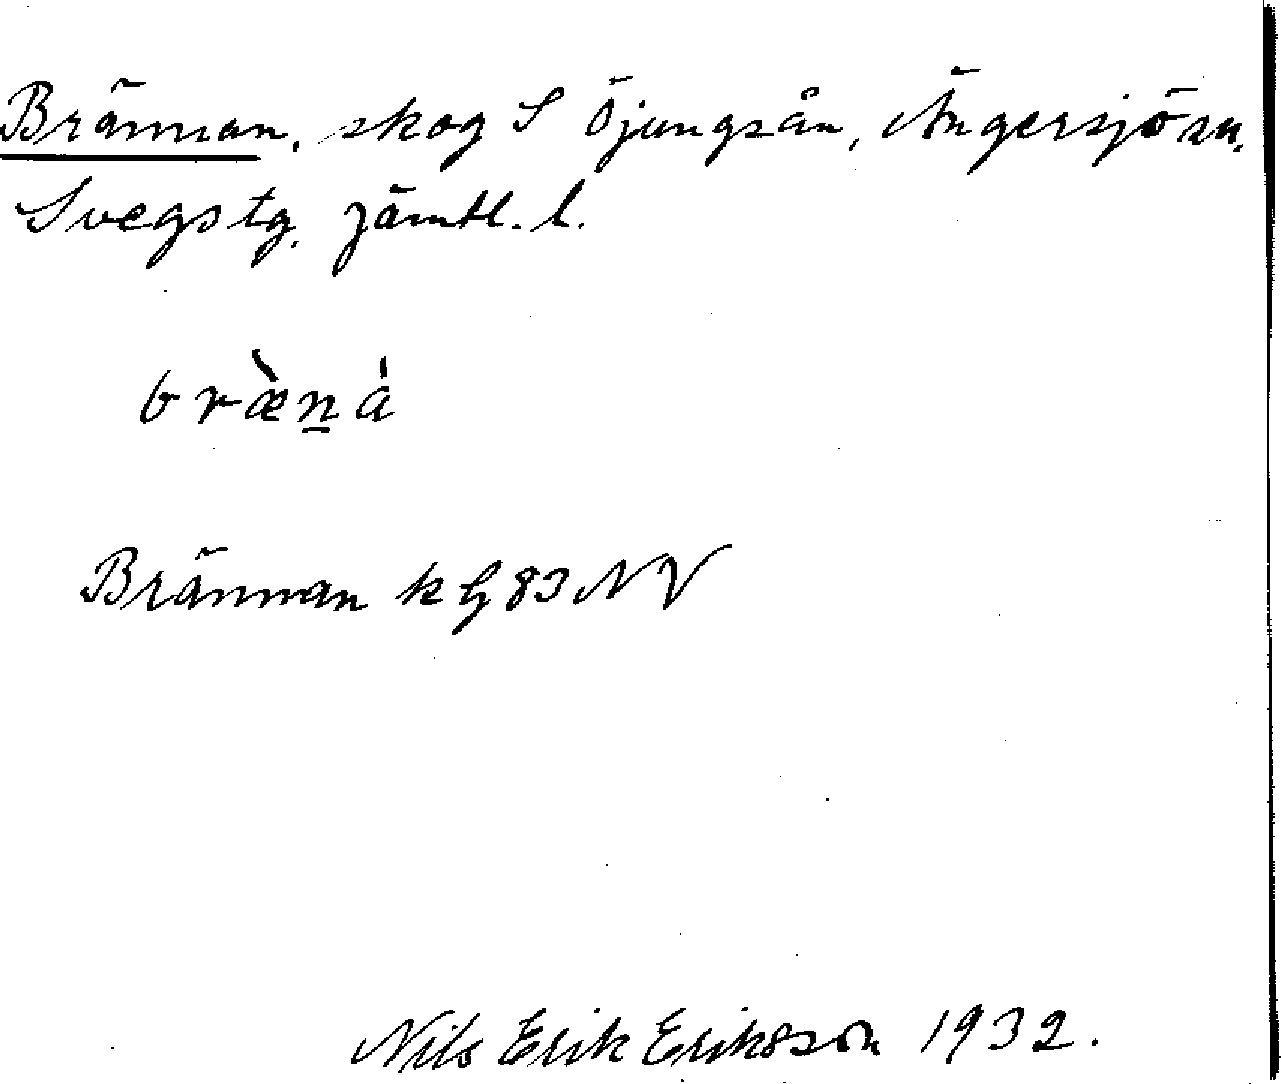 Brännan, skog S Öjungsån, Ängersjö sn,
Svegs tg, Jämtl. l.
bræ̀n̠à
Brännan k G 83 NV
Nils Erik Eriksson 1932.